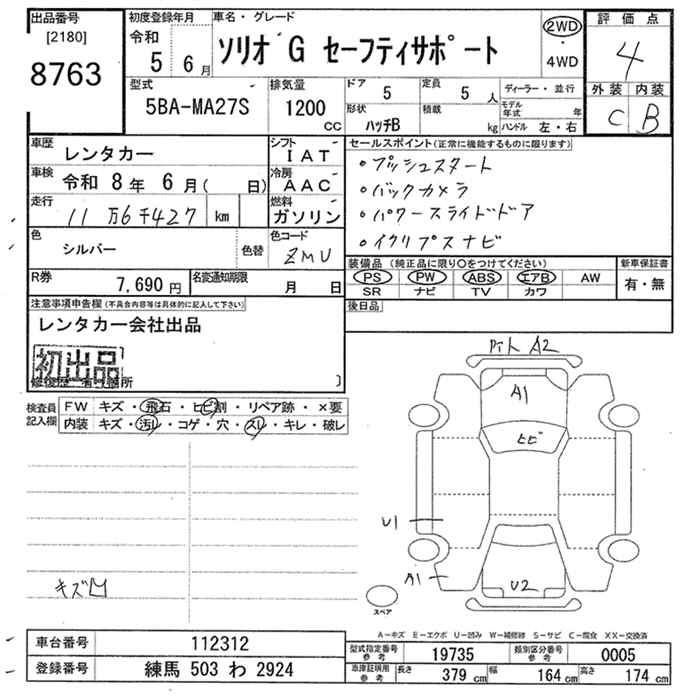 出品番号 [2180] 8763
初度登録年月 令和 5 6月
車名・グレード ソリオ G セーフティサポート
2WD・4WD
評価点 4
外装 C 内装 B
型式 5BA-MA27S
排気量 1200 CC
ドア 5 定員 5 人
形状 ハッチB 積載 kg
ディーラー・並行
モデル年式 年
ハンドル 左・右
車歴 レンタカー
シフト IAT
車検 令和 8年 6月( 日)
冷房 AAC
走行 11万6千427 km
燃料 ガソリン
色 シルバー 色替
色コード ZMU
R券 7,690円
名変通知期限 月 日
セールスポイント(正常に機能するものに限ります)
・プッシュスタート
・バックカメラ
・パワースライドドア
・イクリプスナビ
装備品(純正品に限り○をつけてください)
PS PW ABS エアB AW
SR ナビ TV カワ
新車保証書 有・無
後日品
注意事項申告欄(不具合内容等は具体的に記入して下さい)
レンタカー会社出品
初出品
検査員記入欄
FW キズ・飛石・ヒビ割・リペア跡・×要
内装 キズ・汚レ・コゲ・穴・スレ・キレ・破レ
キズ凹
A2
A1
ヒビ
U1
A1
U2
スペア
A-キズ E-エクボ U-凹み W-補修跡 S-サビ C-腐食 XX-交換済
車台番号 112312
登録番号 練馬 503 わ 2924
型式指定番号 参考 19735
類別区分番号 参考 0005
車庫証明用 参考 長さ 379 cm 幅 164 cm 高さ 174 cm